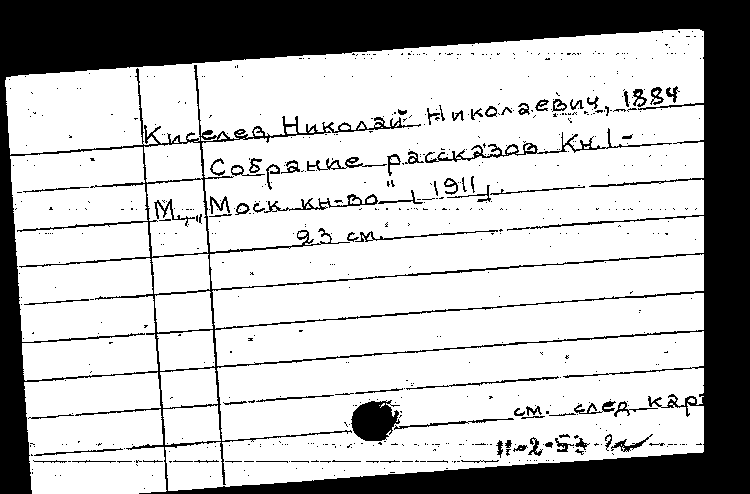 Киселев, Николай Николаевич, 1884
Собрание рассказов Кн.1-
М., „Моск. кн-во" [1911].
23 см.
см. след. карт
11-2-53